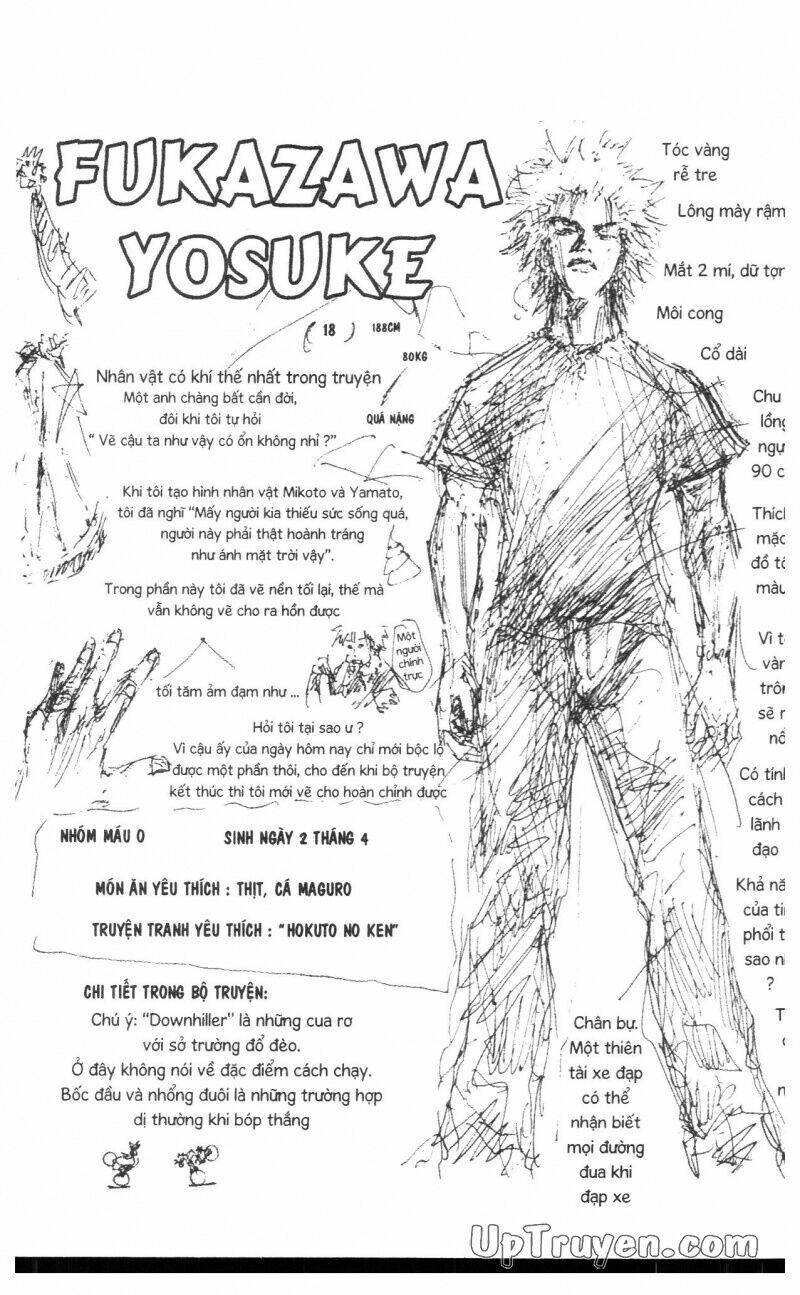 FUKAZAWA
YOSUKE
( 18 )
188CM
80KG
QUÁ NẶNG
Nhân vật có khí thế nhất trong truyện
Một anh chàng bất cần đời,
đôi khi tôi tự hỏi
“ Vẽ cậu ta như vậy có ổn không nhỉ ?”
Khi tôi tạo hình nhân vật Mikoto và Yamato,
tôi đã nghĩ “Mấy người kia thiếu sức sống quá,
người này phải thật hoành tráng
như ánh mặt trời vậy”.
Trong phần này tôi đã vẽ nền tối lại, thế mà
vẫn không vẽ cho ra hồn được
tối tăm ảm đạm như ...
Một
người
chính
trực
Hỏi tôi tại sao ư ?
Vì cậu ấy của ngày hôm nay chỉ mới bộc lộ
được một phần thôi, cho đến khi bộ truyện
kết thúc thì tôi mới vẽ cho hoàn chỉnh được
NHÓM MÁU O
SINH NGÀY 2 THÁNG 4
MÓN ĂN YÊU THÍCH : THỊT, CÁ MAGURO
TRUYỆN TRANH YÊU THÍCH : “HOKUTO NO KEN”
CHI TIẾT TRONG BỘ TRUYỆN:
Chú ý: “Downhiller” là những cua rơ
với sở trường đổ đèo.
Ở đây không nói về đặc điểm cách chạy.
Bốc đầu và nhổng đuôi là những trường hợp
dị thường khi bóp thắng
Tóc vàng
rễ tre
Lông mày rậm
Mắt 2 mí, dữ tợn
Môi cong
Cổ dài
Chu
lồng
ngự
90 c
Thích
mặc
đồ tố
màu
Vì t
vàn
trôn
sẽ
nổ
Có tính
cách
lãnh
đạo
Khả nă
của ti
phổi t
sao n
?
Chân bự.
Một thiên
tài xe đạp
có thể
nhận biết
mọi đường
đua khi
đạp xe
UpTruyen.com